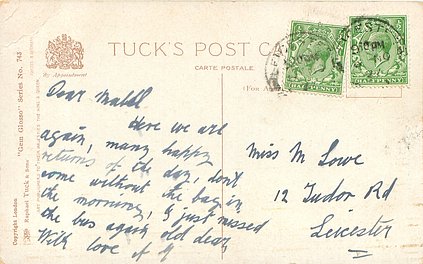 TUCK'S POST CA
CARTE POSTALE
(For A
By Appointment
Copyright London "Gem Glosso" Series No. 743
Raphael Tuck & Sons
HALFPENNY
HALFPENNY
LEICESTER
Dear Mabel
Here we are
again, many happy
returns of the day, don't
come without the bag in
the morning, I just missed
the bus again old dear,
With love
Miss M Lowe
12 Tudor Rd
Leicester